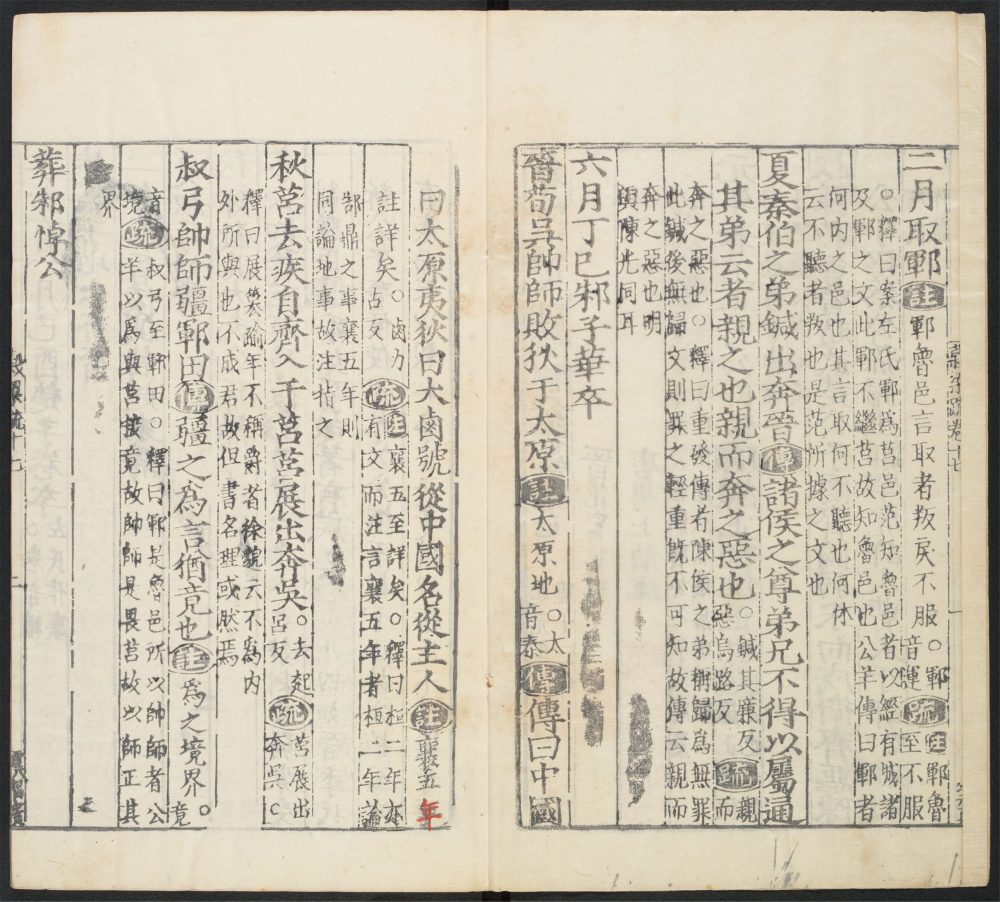 二月取鄆註鄆魯邑言取者叛戾不服○鄆音運疏註鄆魯至不服
○釋曰案左氏鄆爲莒邑范知魯邑者以經有城諸
及鄆之文此鄆不繼莒故知魯邑也公羊傳曰鄆者
何内之邑也其言取何不聽也何休
云不聽者叛也是范所據之文也
夏秦伯之弟鍼出奔晉傳諸侯之尊弟兄不得以屬通
其弟云者親之也親而奔之惡也○鍼其廉反惡烏路反疏親而
奔之惡也○釋曰重發傳者陳侯之弟稱歸爲無罪
此鍼後無歸文則罪之輕重旣不可知故傳云親而
奔之惡也明
與陳光同耳
六月丁巳邾子華卒
晉荀吳帥師敗狄于太原註太原地○太音泰傳傳曰中國
曰太原夷狄曰大鹵號從中國名從主人註襄五年
註詳矣○鹵力古反疏註襄五至詳矣○釋曰桓二年亦有文而注言襄五年者桓二年論
郜鼎之事襄五年則
同論地事故注指之
秋莒去疾自齊入于莒莒展出奔吳○去起呂反疏莒展出奔吳○
釋曰展篡踰年不稱爵者徐邈云不爲内
外所與也不成君故但書名理或然焉
叔弓帥師疆鄆田傳疆之爲言猶竟也註爲之境界○竟
音境疏叔弓至鄆田○釋曰鄆是魯邑所以帥師者公羊以爲與莒接竟故帥師是畏莒故以師正其
界
葬邾悼公